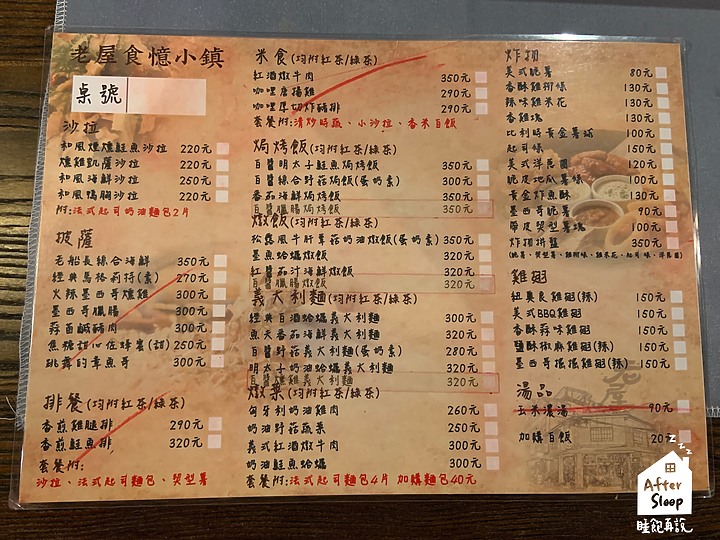 老屋食憶小鎮
桌號
沙拉
和風煙燻鮭魚沙拉 220元
燻雞凱薩沙拉 220元
和風海鮮沙拉 250元
和風鴨胸沙拉 220元
附:法式起司奶油麵包2片
披薩
老船長綜合海鮮 350元
經典瑪格莉特(素) 270元
火辣墨西哥燻雞 300元
墨西哥臘腸 300元
蒜苗鹹豬肉 300元
焦糖甜心佐蜂蜜(甜) 250元
跳舞的章魚哥 300元
排餐(均附紅茶/綠茶)
香煎雞腿排 290元
香煎鮭魚排 320元
套餐附:
沙拉、法式起司麵包、契型薯
米食(均附紅茶/綠茶)
紅酒燉牛肉 350元
咖哩唐揚雞 290元
咖哩厚切炸豬排 290元
套餐附:清炒時蔬、小沙拉、香米白飯
焗烤飯(均附紅茶/綠茶)
白醬明太子鮭魚焗烤飯 350元
白醬綜合野菇焗飯(蛋奶素) 300元
番茄海鮮焗烤飯 350元
白醬臘腸焗烤飯 350元
燉飯(均附紅茶/綠茶)
松露風牛肝蕈菇奶油燉飯(蛋奶素) 350元
墨魚蛤蠣燉飯 300元
紅醬茄汁海鮮燉飯 320元
白醬臘腸燉飯 320元
義大利麵(均附紅茶/綠茶)
經典白酒蛤蠣義大利麵 300元
魚夫番茄海鮮義大利麵 320元
白醬野菇義大利麵(蛋奶素) 280元
明太子奶油蛤蠣義大利麵 320元
白醬燻雞義大利麵 320元
燉菜(均附紅茶/綠茶)
匈牙利奶油雞肉 260元
奶油野菇蔬菜 250元
義式紅酒燉牛肉 300元
奶油鮭魚蛤蠣 300元
套餐附:法式起司麵包4片 加購麵包40元
炸物
美式脆薯 80元
香酥雞柳條 130元
辣味雞米花 130元
香雞塊 130元
比利時黃金薯球 100元
起司條 150元
美式洋蔥圈 120元
脆皮地瓜薯條 100元
黃金炸魚酥 130元
墨西哥脆薯 90元
帶皮契型薯塊 100元
炸物拼盤 350元
(脆薯、契型薯、雞柳條、雞米花、起司條、洋蔥圈)
雞翅
紐奧良雞翅(辣) 150元
美式BBQ雞翅 150元
香酥蒜味雞翅 150元
鹽酥椒麻雞翅(辣) 150元
墨西哥搖搖雞翅(辣) 150元
湯品
玉米濃湯 90元
加購白飯 20
After
Sloop
睡飽再說